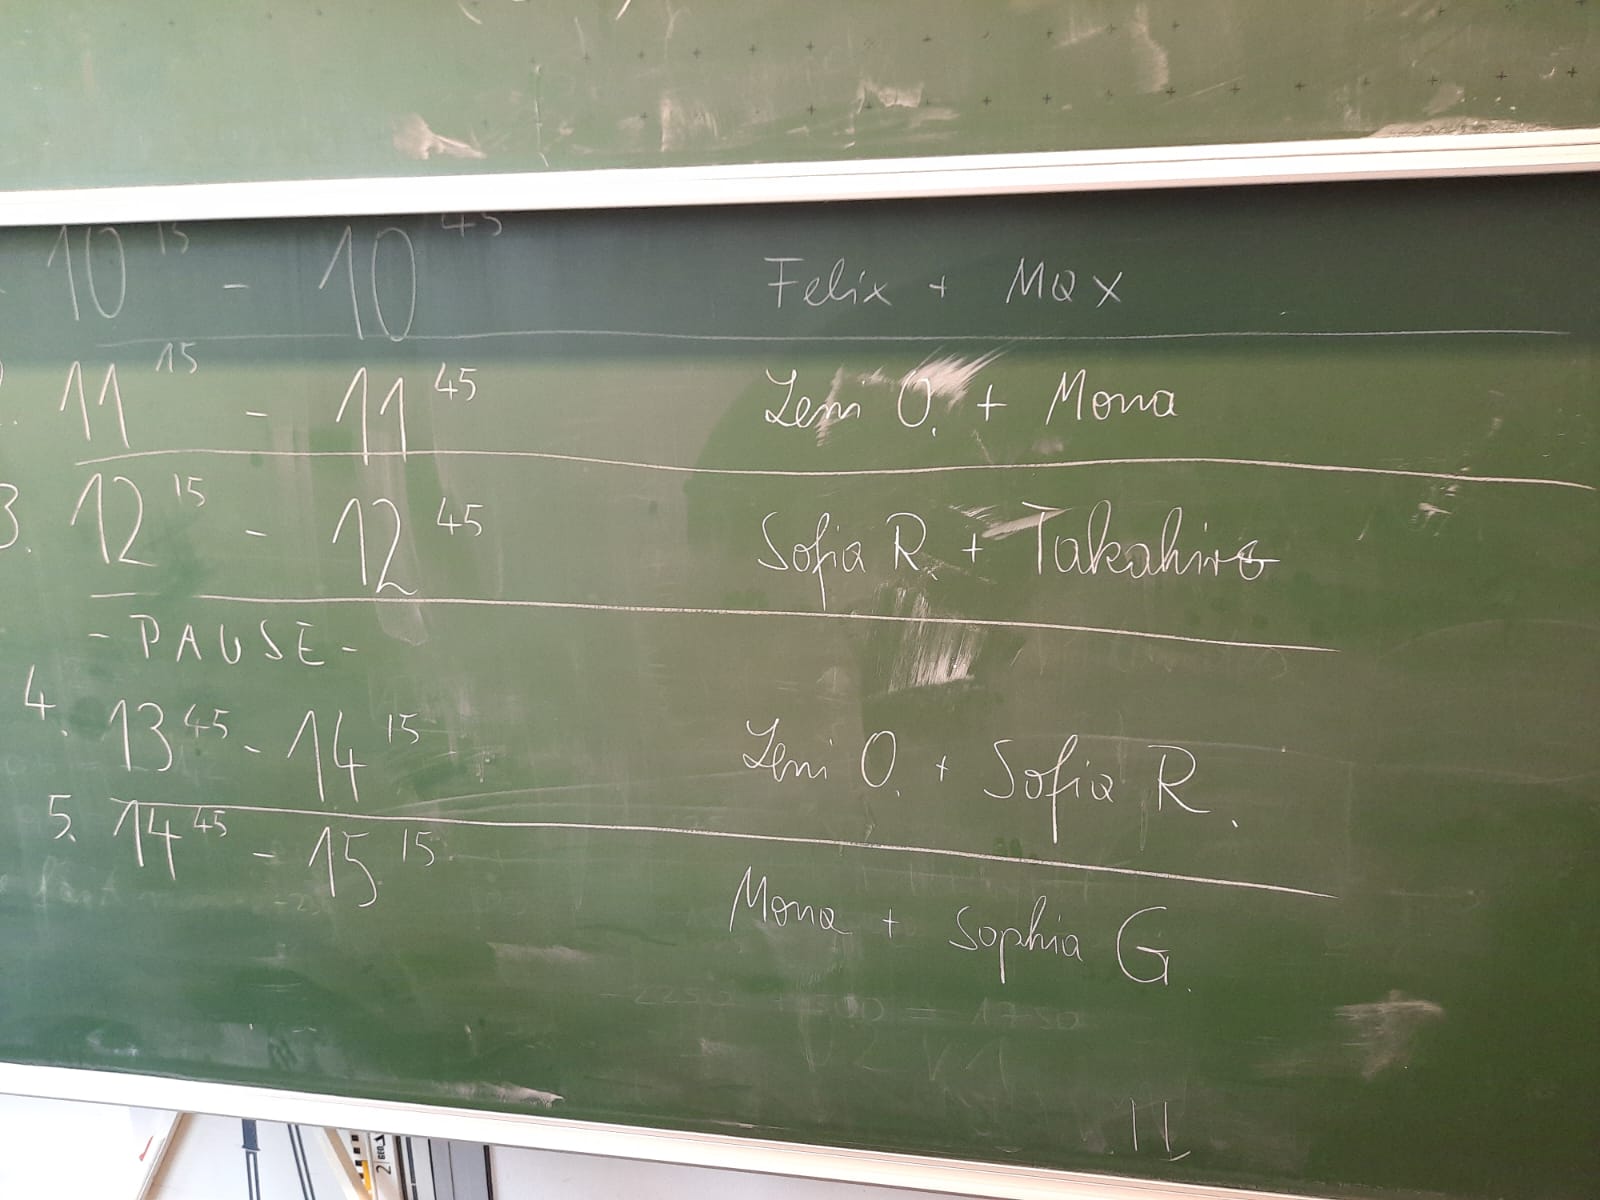 10 15 - 10 45 Felix + Max
11 15 - 11 45 Leni O. + Mona
3. 12 15 - 12 45 Sofia R. + Takahiro
- PAUSE -
4. 13 45 - 14 15 Leni O. + Sofia R.
5. 14 45 - 15 15 Mona + Sophia G.
-2250 + 500 = 1750